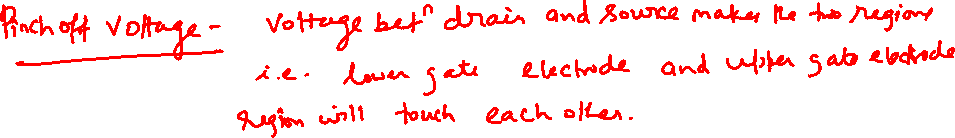 Pinch off Voltage - Voltage betⁿ drain and source makes the two regions
i.e. lower gate electrode and upper gate electrode
region will touch each other.